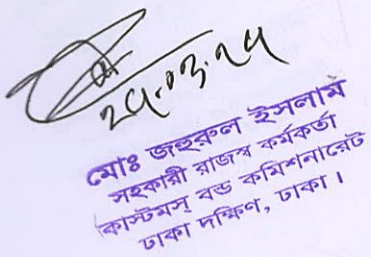 ২৭.০৩.২৭
মোঃ জহুরুল ইসলাম
সহকারী রাজস্ব কর্মকর্তা
কাস্টমস্ বন্ড কমিশনারেট
ঢাকা দক্ষিণ, ঢাকা।